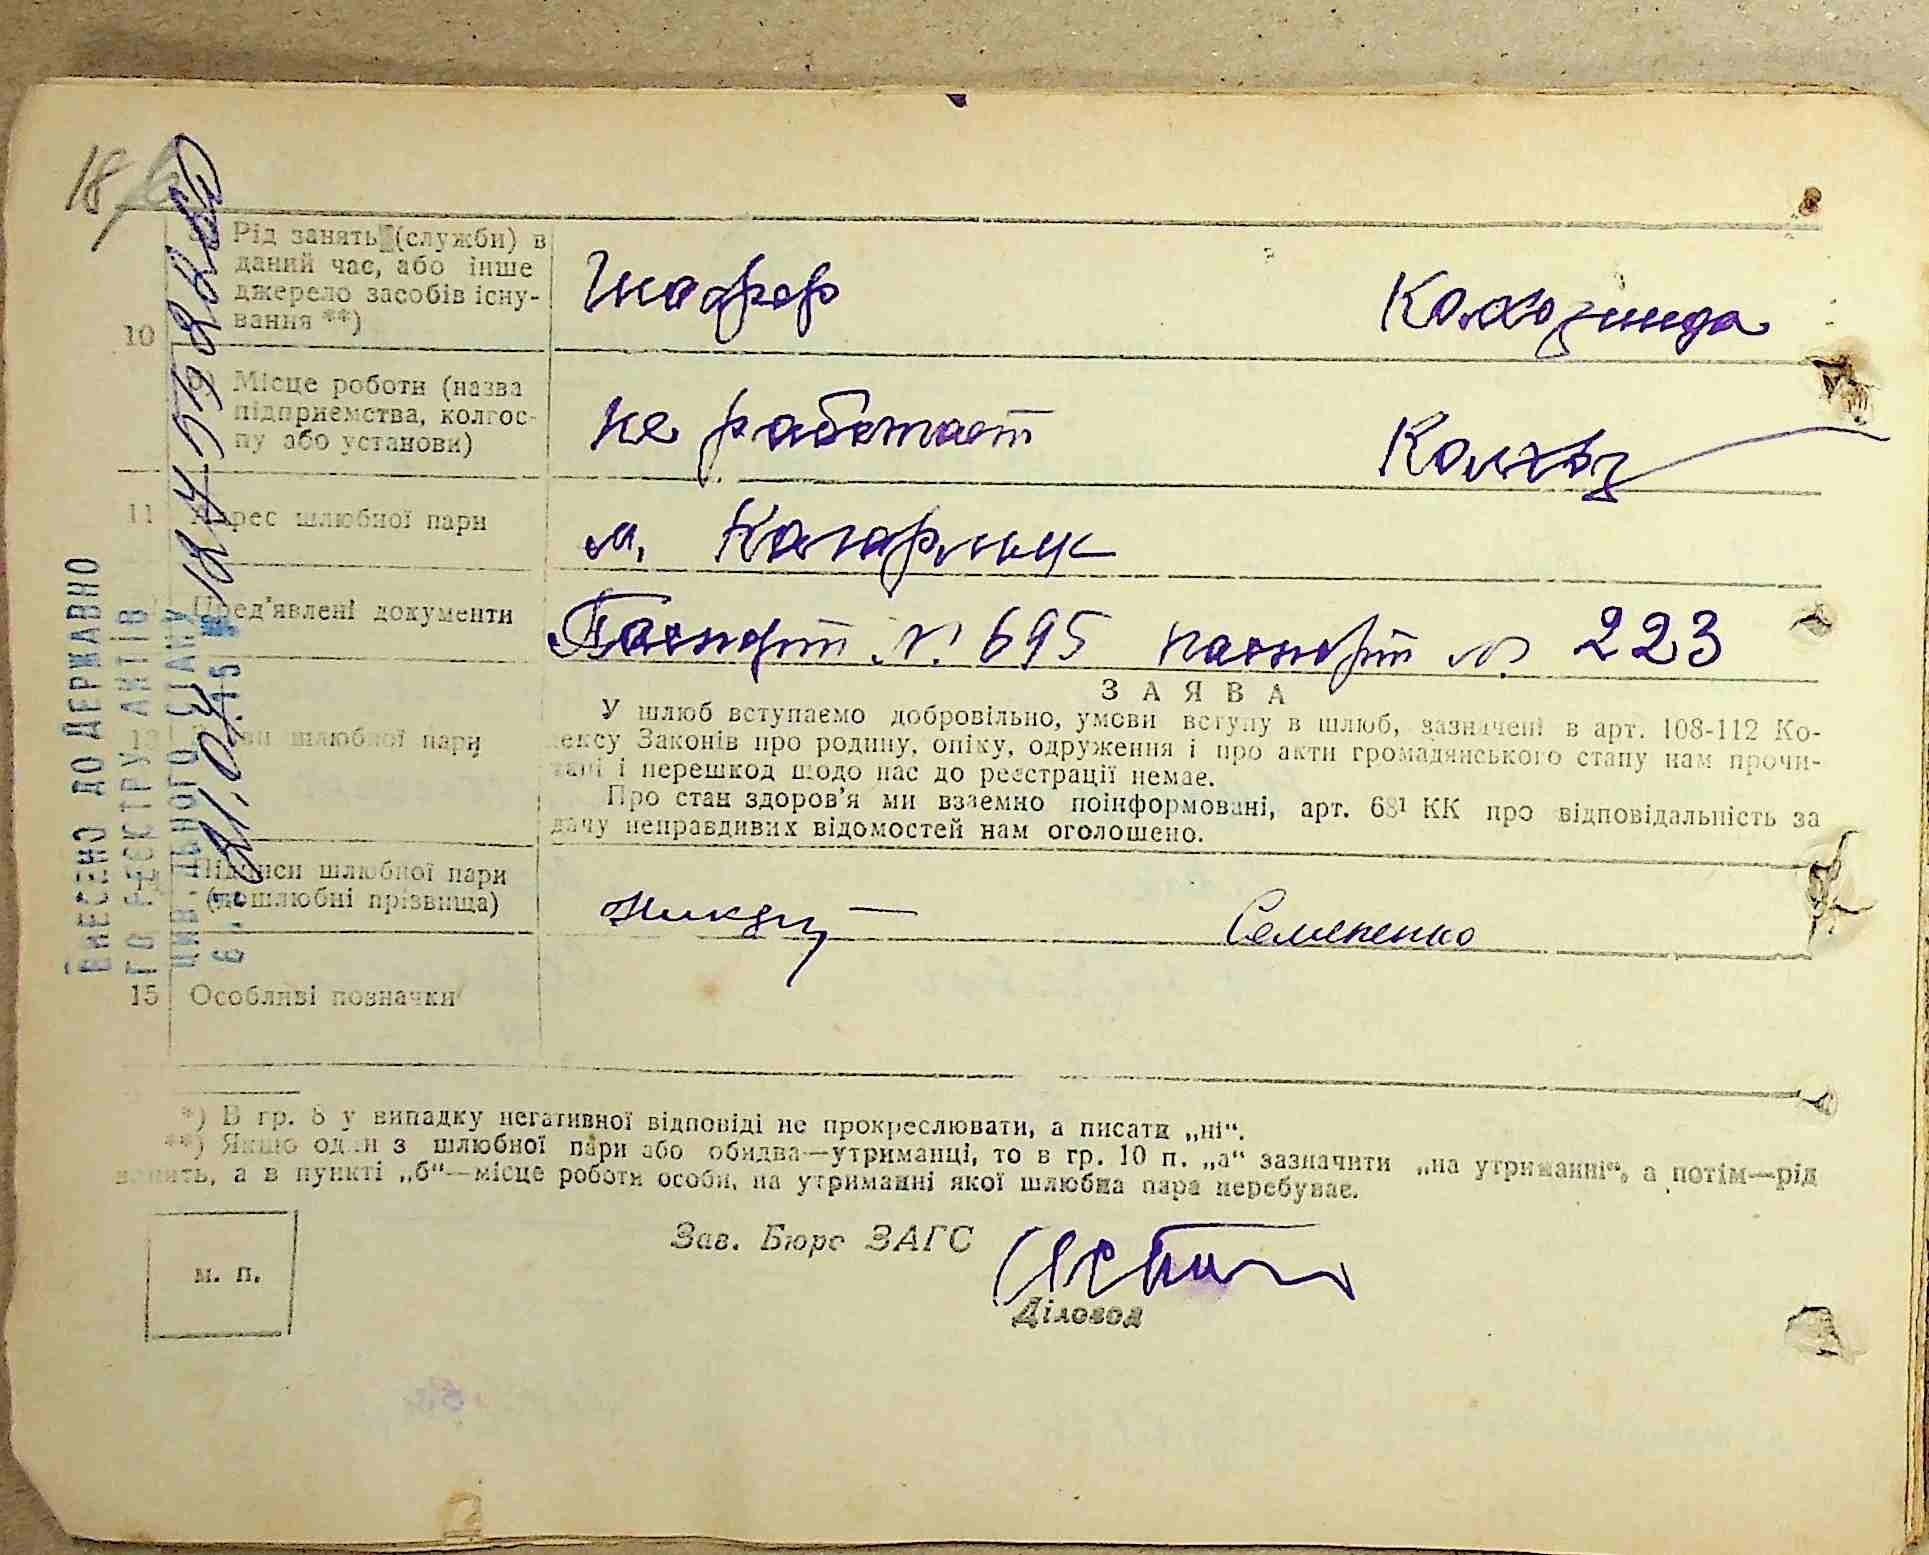 18
Рід занять (служби) в
даний час, або інше
джерело засобів існу-
вання **)
10
Шофер
Місце роботи (назва
підприємства, колгос-
пу або установи)
не работает
Колхоз
11 Адрес шлюбної пари
м. Кагарлык
Пред'явлені документи
Паспорт № 695 паспорт № 223
ЗАЯВА
У шлюб вступаємо добровільно, умови вступу в шлюб, зазначені в арт. 108-112 Ко-
дексу Законів про родину, опіку, одруження і про акти громадянського стану нам прочи-
тані і перешкод щодо нас до реєстрації немає.
Про стан здоров'я ми взаємно поінформовані, арт. 68¹ КК про відповідальність за
дачу неправдивих відомостей нам оголошено.
13 шлюбної пари
Підписи шлюбної пари
(дошлюбні прізвища)
Семененко
15 Особливі позначки
*) В гр. 8 у випадку негативної відповіді не прокреслювати, а писати „ні“.
**) Якщо один з шлюбної пари або обидва—утриманці, то в гр. 10 п. „а“ зазначити „на утриманні“, а потім—рід
занять, а в пункті „б“—місце роботи особи, на утриманні якої шлюбна пара перебуває.
Зав. Бюро ЗАГС
м. п.
Діловод
ВНЕСЕНО ДО ДЕРЖАВНО
ГО РЕЄСТРУ АКТІВ
ЦИВІЛЬНОГО СТАНУ